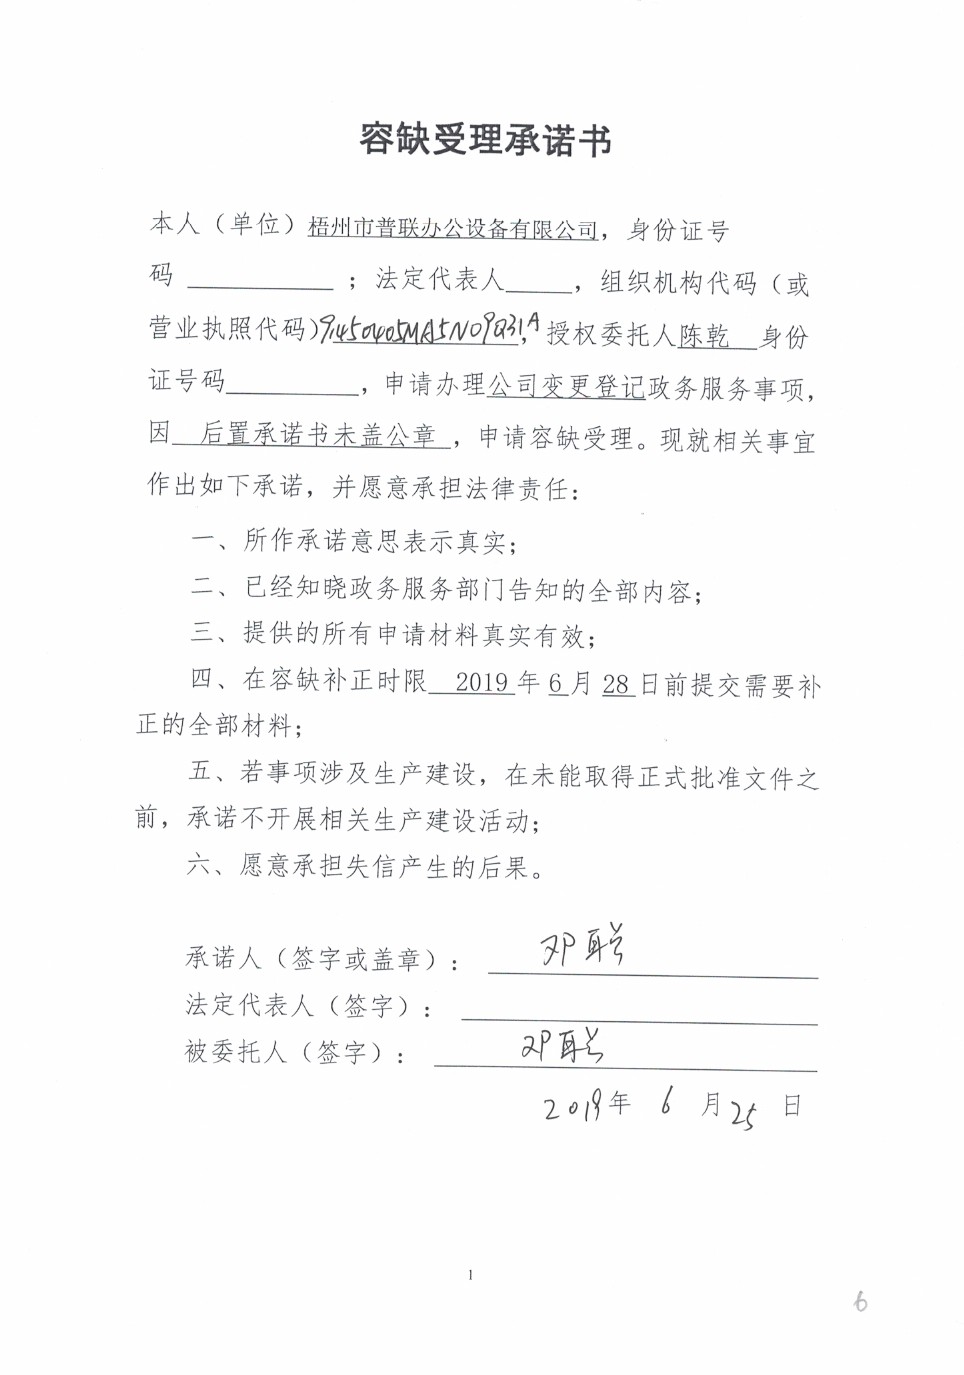 容缺受理承诺书
本人（单位）梧州市普联办公设备有限公司，身份证号
码 ___________ ；法定代表人_____，组织机构代码（或
营业执照代码）91450405MA5N09Q31A，授权委托人陈乾__身份
证号码__________，申请办理公司变更登记政务服务事项，
因__后置承诺书未盖公章_，申请容缺受理。现就相关事宜
作出如下承诺，并愿意承担法律责任：
一、所作承诺意思表示真实；
二、已经知晓政务服务部门告知的全部内容；
三、提供的所有申请材料真实有效；
四、在容缺补正时限__2019年6月28日前提交需要补
正的全部材料；
五、若事项涉及生产建设，在未能取得正式批准文件之
前，承诺不开展相关生产建设活动；
六、愿意承担失信产生的后果。
承诺人（签字或盖章）：邓聪
法定代表人（签字）：
被委托人（签字）：邓聪
2019年 6 月 25 日
1
6